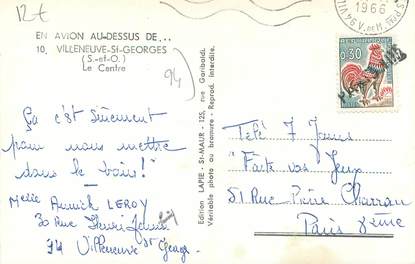 12€
EN AVION AU-DESSUS DE...
10. VILLENEUVE-St-GEORGES
(S.-et-O.)
Le Centre
94
Ça c'est sûrement
pour nous mettre
dans le bain!
Melle Annick LEROY
30 Rue Henri
94 Villeneuve St Georges
Edition LAPIE - St-MAUR - 125, rue Garibaldi.
Véritable photo au bromure - Reprod. interdite.
1966
0,30
Télé 7 Jours
"Faites vos Jeux"
51 Rue Pierre Charron
Paris 8ème